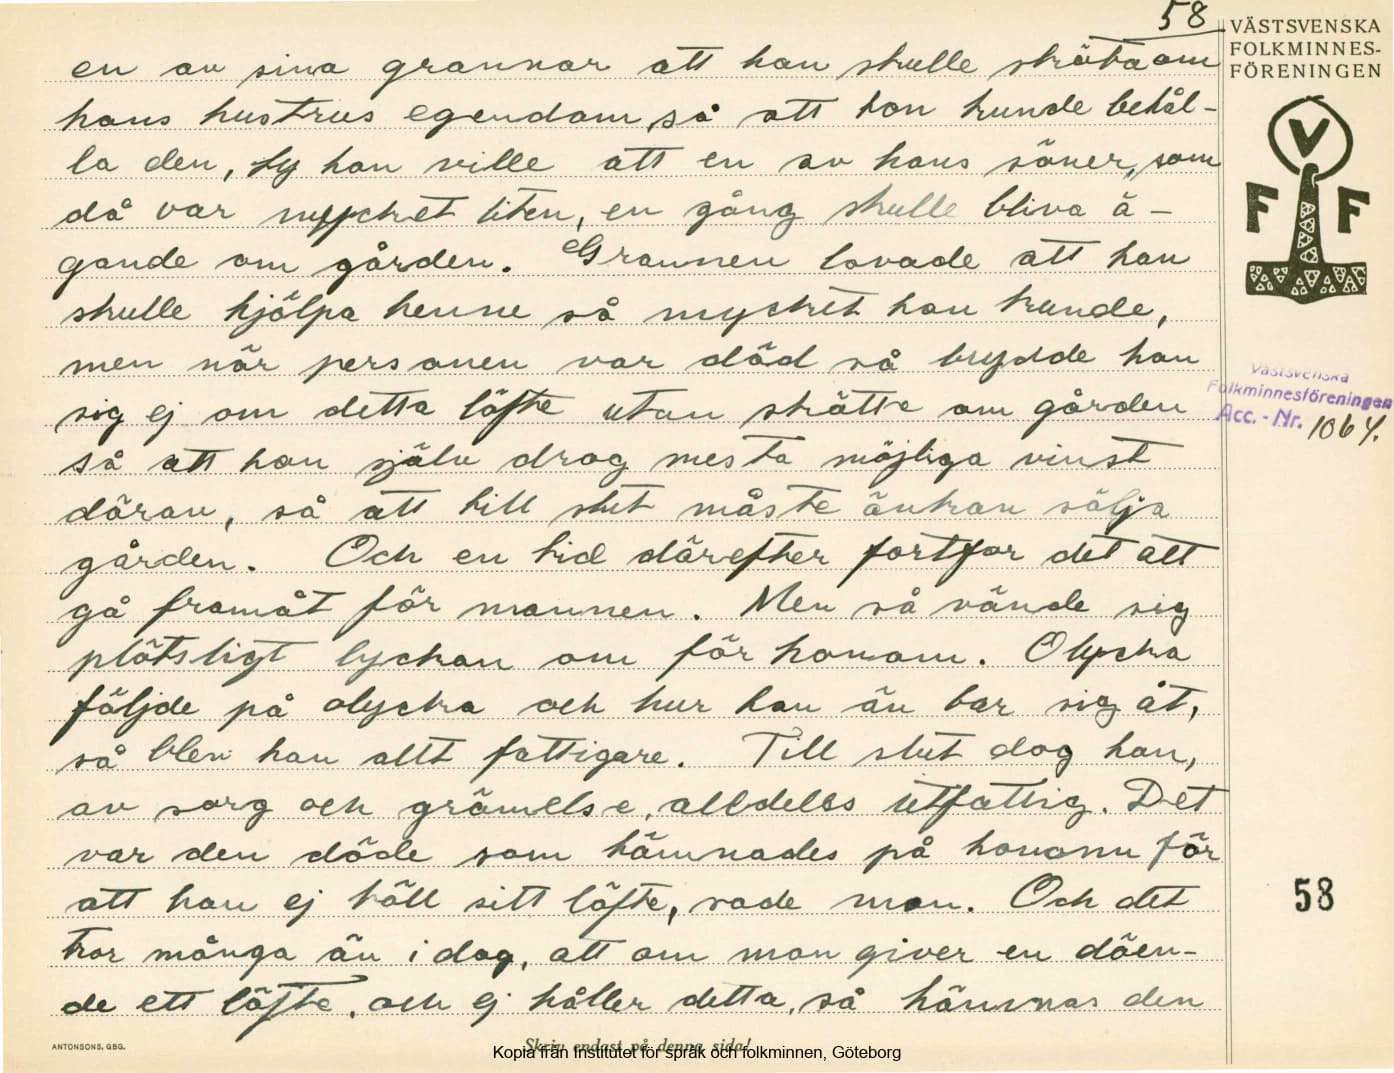 58
VÄSTSVENSKA
FOLKMINNES-
FÖRENINGEN
en av sina grannar att han skulle sköta om
hans hustrus egendom, så att hon kunde behål-
la den, ty han ville att en av hans söner, som
då var mycket liten, en gång skulle bliva ä-
gande om gården. Grannen lovade att han
skulle hjälpa henne så mycket han kunde,
men när personen var död så brydde han
sig ej om detta löfte utan skötte om gården
så att han själv drog mesta möjliga vinst
därav, så att till slut måste änkan sälja
gården. Och en tid därefter fortfor det att
gå framåt för mannen. Men så vände sig
plötsligt lyckan om för honom. Olycka
följde på olycka och hur han än bar sig åt,
så blev han allt fattigare. Till slut dog han,
av sorg och grämelse, alldeles utfattig. Det
var den döde som hämnades på honom för
att han ej höll sitt löfte, sade man. Och det
tror många än i dag, att om man giver en döen-
de ett löfte, och ej håller detta, så hämnas den
V
F F
Västsvenska
Folkminnesföreningen
Acc. - Nr. 1064.
58
ANTONSONS, GBG.
Skriv endast på denna sida!
Kopia från Institutet för språk och folkminnen, Göteborg